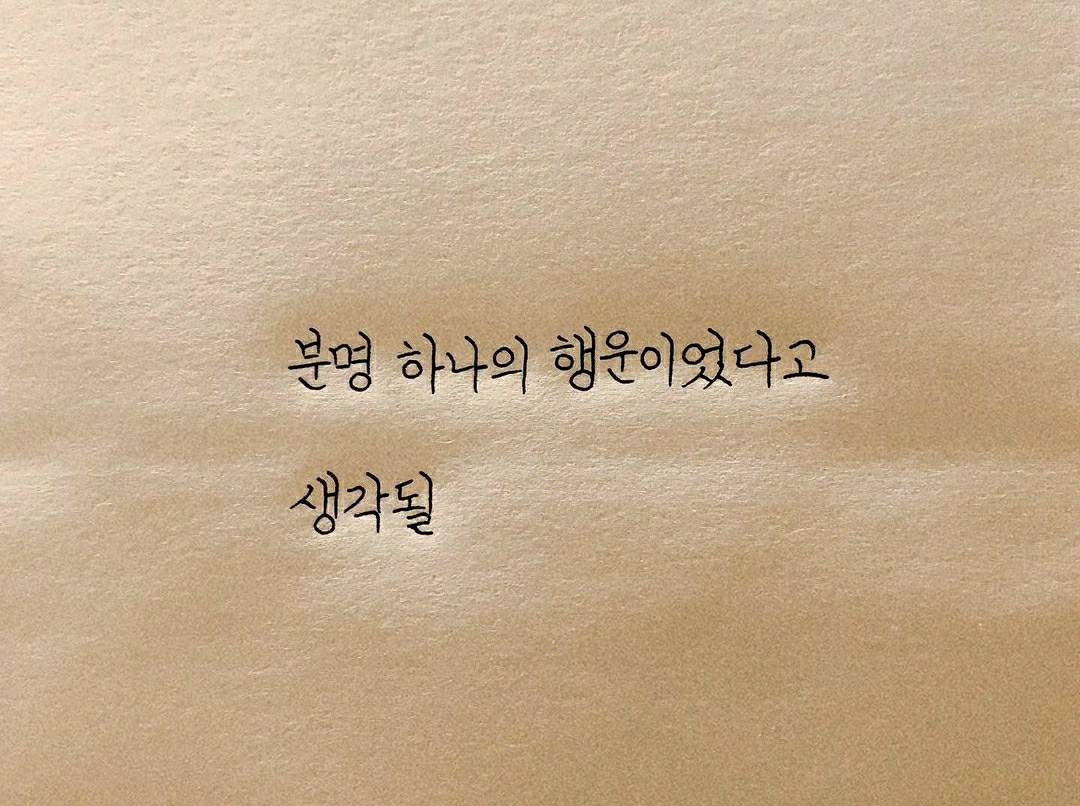 분명 하나의 행운이었다고
생각될